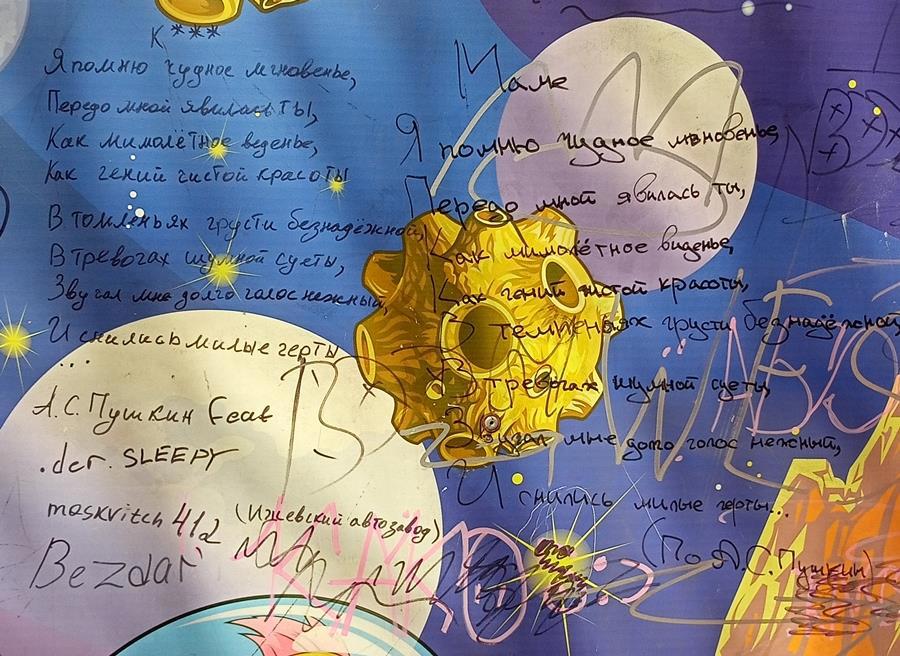 К***
Я помню чудное мгновенье,
Передо мной явилась ты,
Как мимолётное веденье,
Как гений чистой красоты
В томленьях грусти безнадёжной,
В тревогах шумной суеты,
Звучал мне долго голос нежный,
И снились милые черты
...
А.С. Пушкин feat
.der. SLEEPY
moskvitch 412 (Ижевский автозавод)
Bezdar
Маме
Я помню чудное мгновенье,
Передо мной явилась ты,
Как мимолётное виденье,
Как гений чистой красоты,
В темненьях грусти безнадёжной,
В тревогах шумной суеты,
Звучал мне долго голос нежный,
И снились милые черты...
(По А.С. Пушкин)